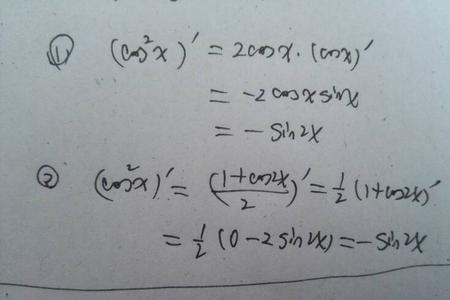 ① (cos²x)′ = 2cosx·(cosx)′
= -2cosxsinx
= -sin2x
② (cos²x)′ = ((1+cos2x)/2)′ = 1/2 (1+cos2x)′
= 1/2 (0-2sin2x) = -sin2x